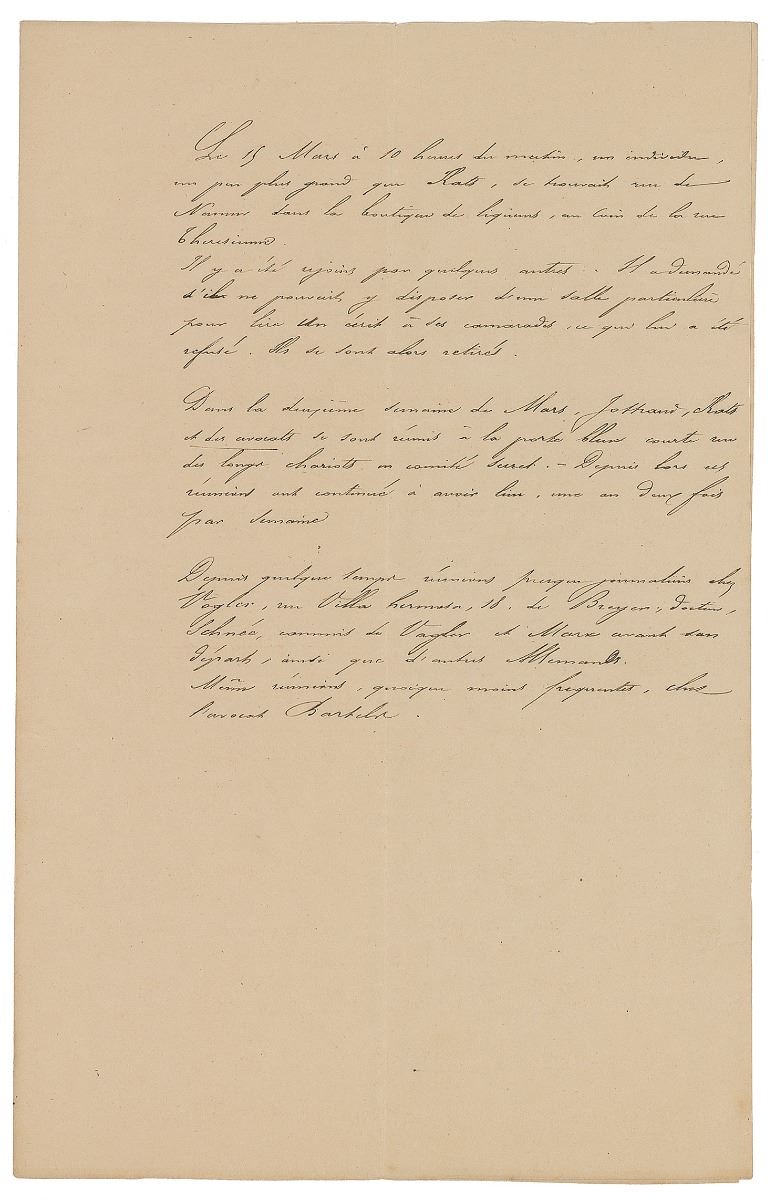 Le 15 Mars à 10 heures du matin, un individu,
un peu plus grand que Kats, se trouvait rue de
Namur dans la boutique de liqueurs, au coin de la rue
Theresienne.
Il y a été rejoins par quelques autres. Il a demandé
s'il ne pouvait y disposer d'un salle particulière
pour lire un écrit à ses camarades, ce que lui a été
refusé. Ils se sont alors retirés.
Dans la deuxième semaine de Mars, Jottrand, Kats
et des avocats se sont réunis à la porte bleue courte rue
des longs chariots en comité secret. - Depuis lors ces
réunions ont continué à avoir lieu, une ou deux fois
par semaine
Depuis quelque temps réunions presque journalières chez
Vogler, rue Villa hermosa, 18. de Breyer, docteur,
Schnée, commis de Vogler et Marx avant son
départ, ainsi que d'autres Allemands.
Même réunions, quoique moins frequentes, chez
l'avocat Bartels.